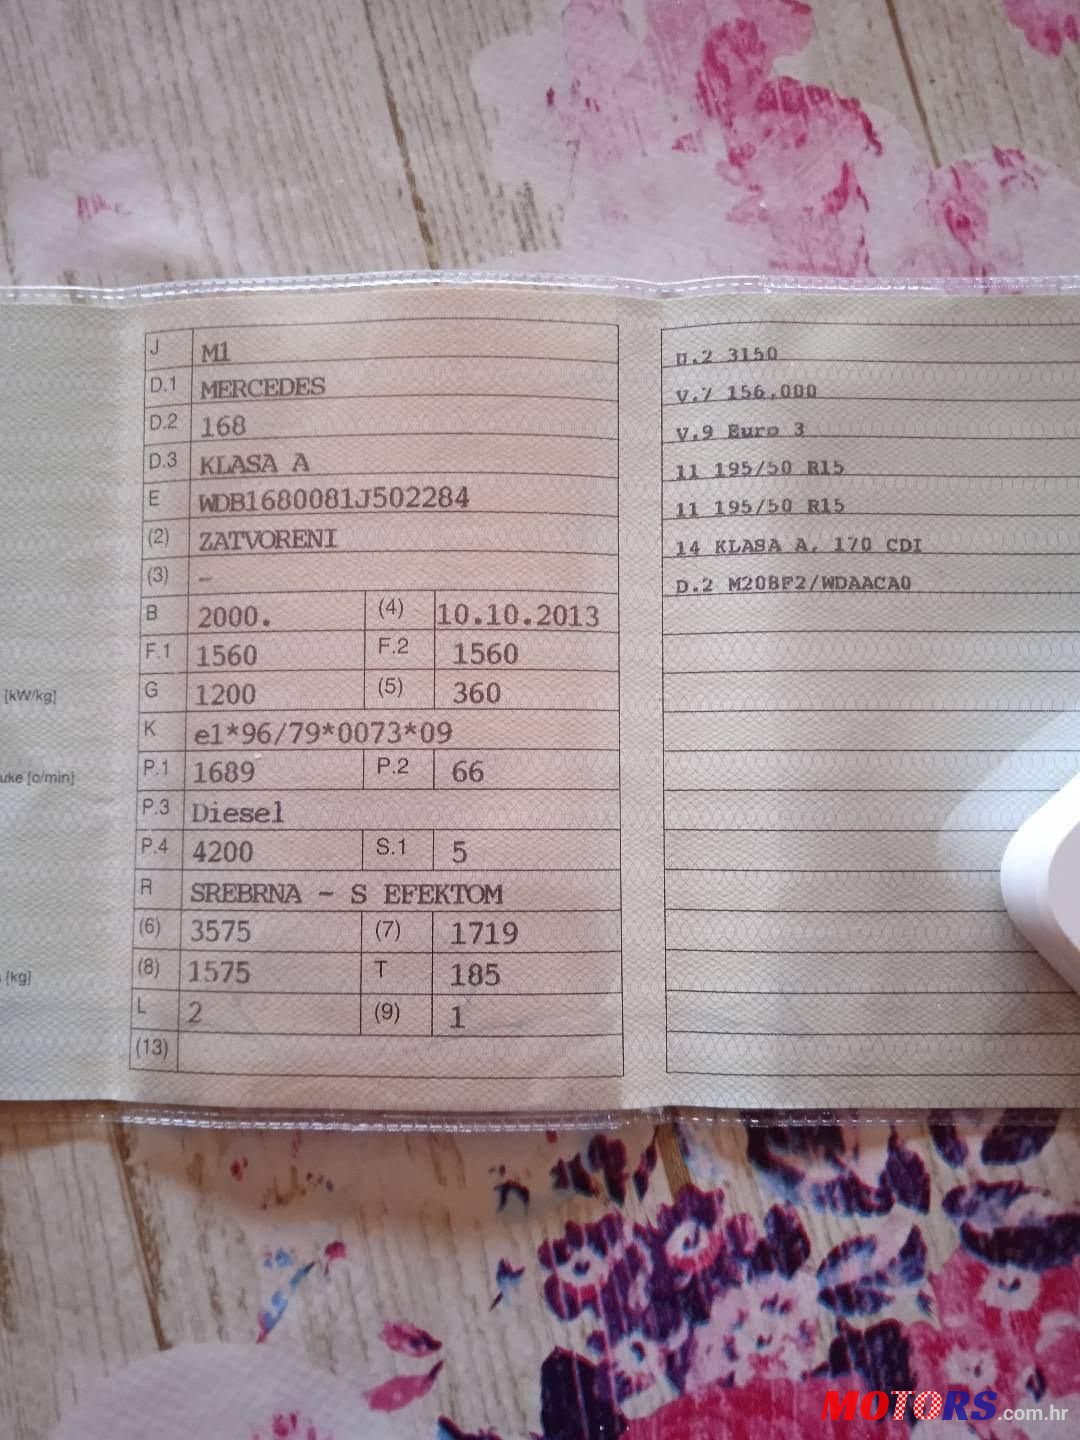 [kW/kg]
uke [o/min]
[kg]
J M1
D.1 MERCEDES
D.2 168
D.3 KLASA A
E WDB1680081J502284
(2) ZATVORENI
(3) –
B 2000. (4) 10.10.2013
F.1 1560 F.2 1560
G 1200 (5) 360
K e1*96/79*0073*09
P.1 1689 P.2 66
P.3 Diesel
P.4 4200 S.1 5
R SREBRNA - S EFEKTOM
(6) 3575 (7) 1719
(8) 1575 T 185
L 2 (9) 1
(13)
n.2 3150
V.7 156,000
V.9 Euro 3
11 195/50 R15
11 195/50 R15
14 KLASA A, 170 CDI
D.2 M20BF2/WDAACA0
MOTORS.com.hr